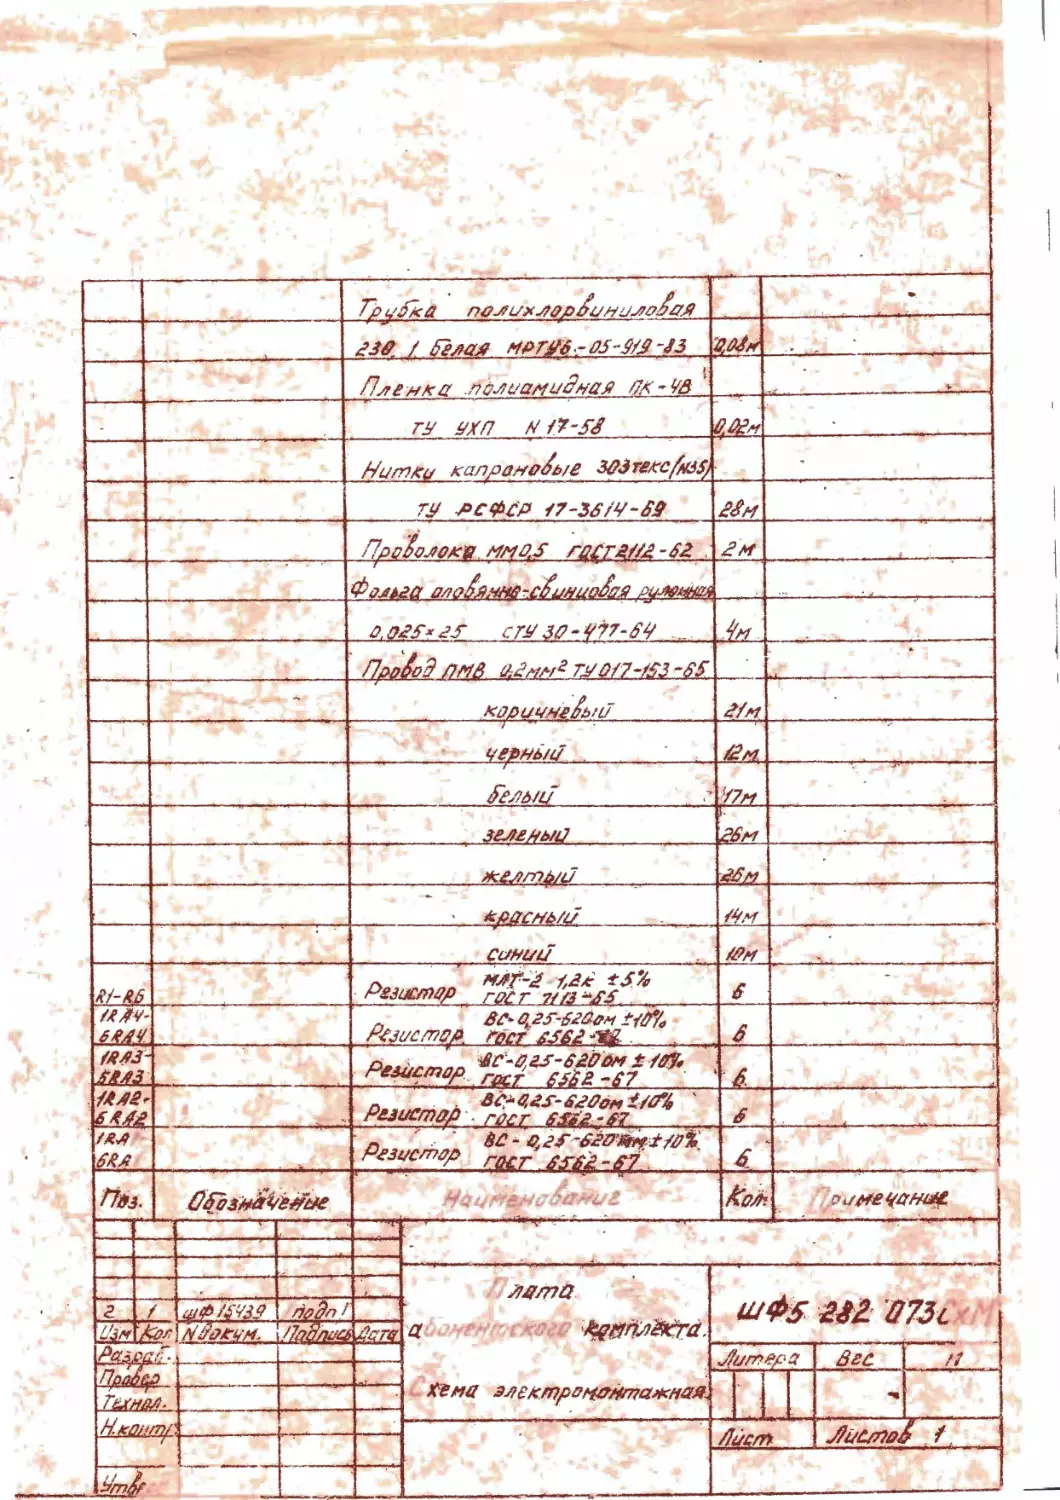 Трубка полихлорвиниловая
230. 1 белая МРТУ6-05-919-83 0,08м
Пленка полиамидная ПК-4В
ТУ УХП N 17-58 0,02м
Нитки капроновые 303текс(N35)
ТУ РСФСР 17-3614-69 28м
Проволока ММ0,5 ГОСТ2112-62 2м
Фольга оловянно-свинцовая рулонная
0,025×25 СТУ 30-477-64 4м
Провод ПМВ 0,2мм² ТУ 017-153-65
коричневый 21м
черный 12м
белый 17м
зеленый 26м
желтый 26м
красный 14м
синий 10м
МЛТ-2 1,2к ±5%
R1-R6 Резистор ГОСТ 7113-65 6
1RA4- ВС-0,25-620ом ±10%
6RA4 Резистор ГОСТ 6562- 6
1RA3- ВС-0,25-620ом ±10%
6RA3 Резистор ГОСТ 6562-67 6
1RA2- ВС-0,25-620ом ±10%
6RA2 Резистор ГОСТ 6562-67 6
1RA ВС-0,25-620ом ±10%
6RA Резистор ГОСТ 6562-67 6
Поз. Обозначение Наименование Кол. Примечание
Плата
абонентского комплекта.
Схема электромонтажная
ШФ5 282 073СхМ
2 1 ШФ15439 подп!
Изм Кол N докум. Подпись Дата
Разраб.
Провер
Технол.
Н.контр
Утв
Литера Вес
-
Лист Листов 1